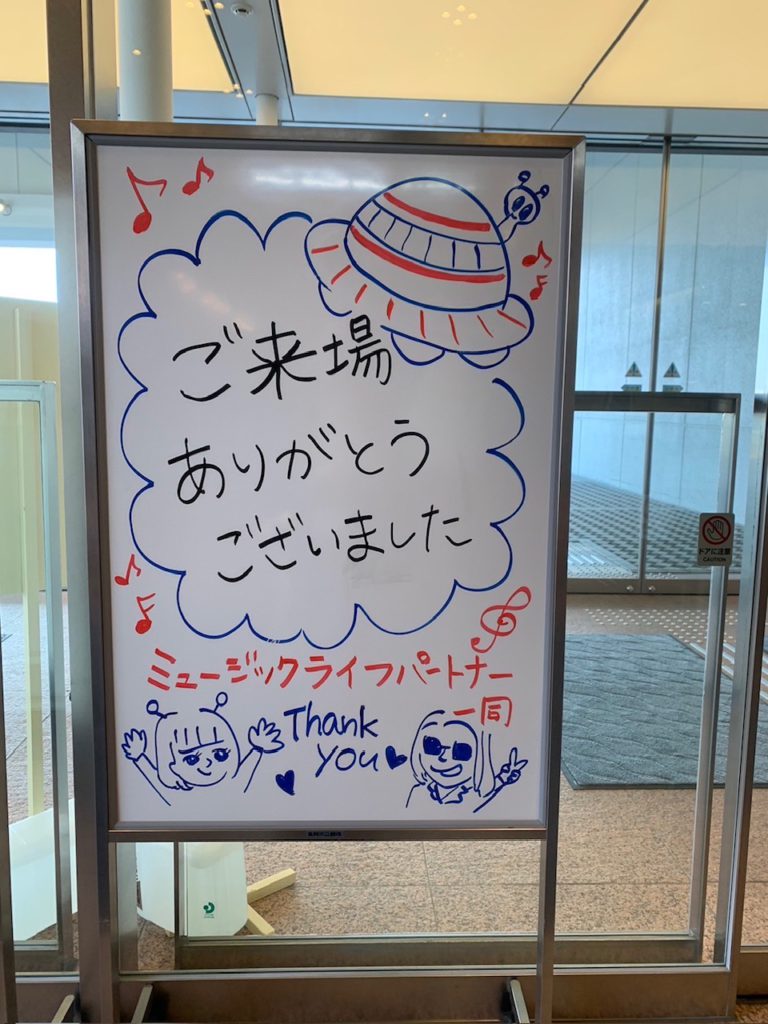 ご来場
ありがとう
ございました
ミュージックライフパートナー
一同
Thank
you
ドアに注意
CAUTION